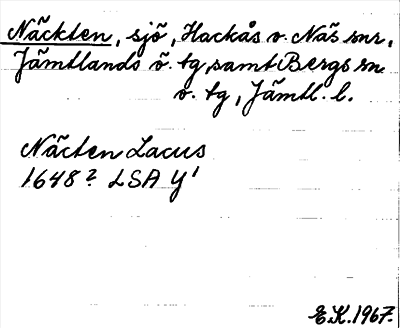 Näckten, sjö, Hackås o. Näs snr,
Jämtlands ö. tg, samt Bergs sn
v. tg, Jämtl. l.
Näcten Lacus
1648? LSA Y'
E.K. 1967.